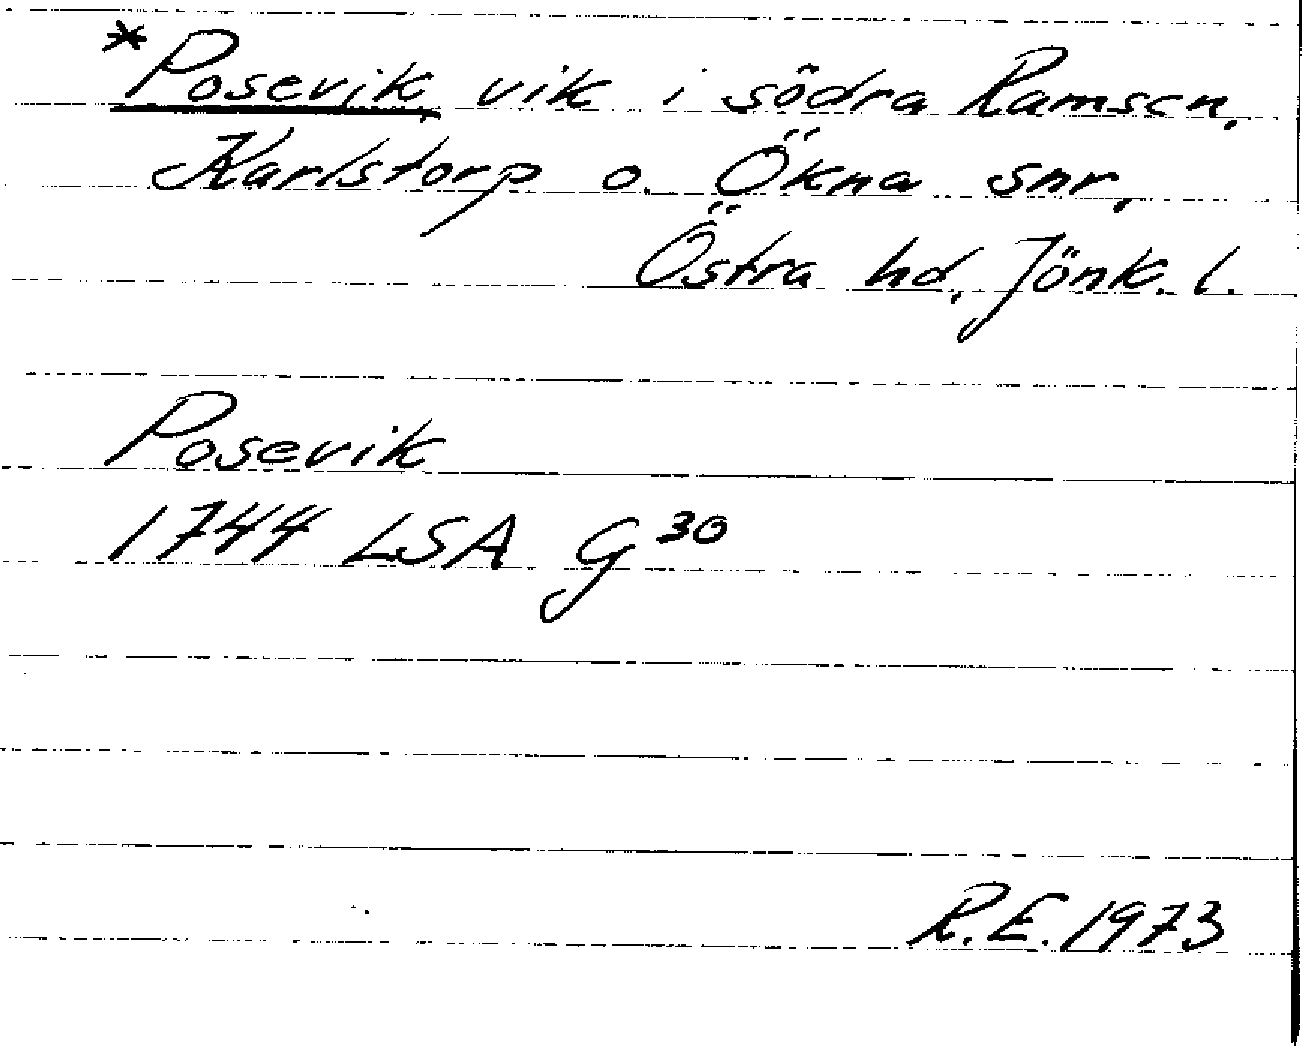 *Posevik, vik i södra Ramsen,
Karlstorp o. Ökna snr,
Östra hd, Jönk. l.
Posevik
1744 LSA G 30
R.E. 1973